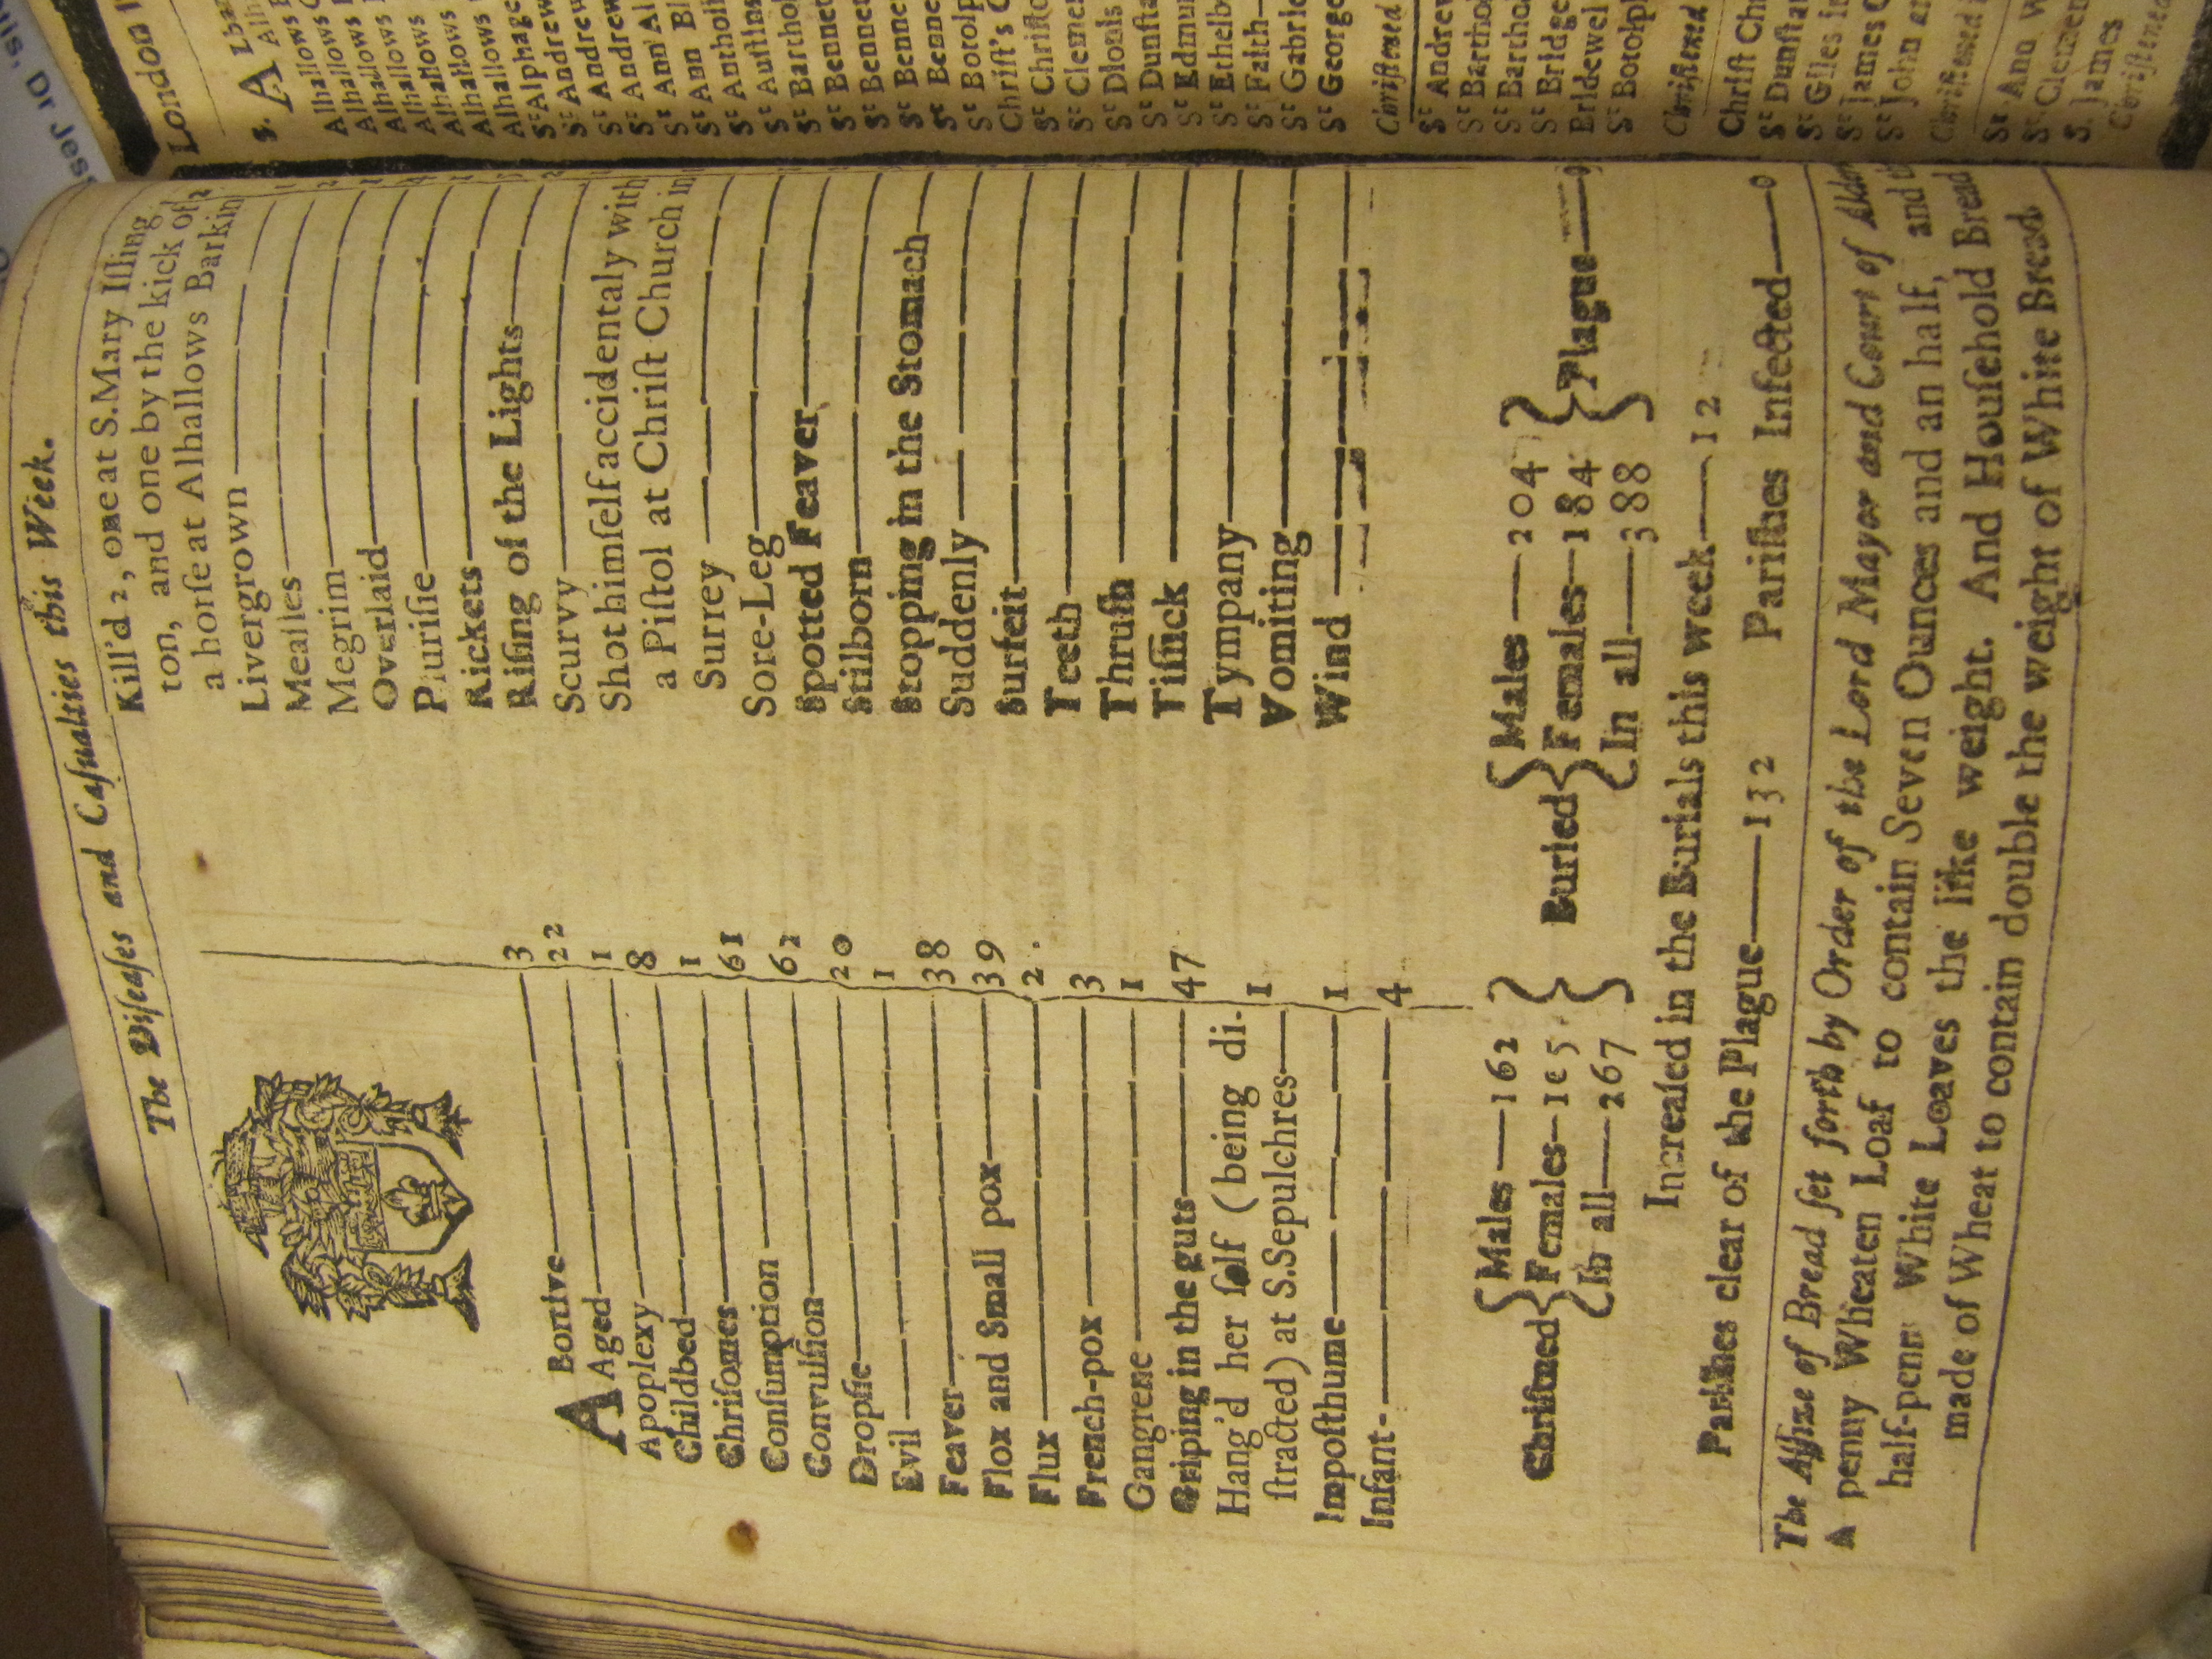 The Diſeaſes and Caſualties this Week.
ABortive 3
Aged 22
Apoplexy 1
Childbed 8
Chriſomes 1
Conſumption 61
Convulſion 62
Dropſie 20
Evil 1
Feaver 38
Flox and Small pox 39
Flux 2
French-pox 3
Gangrene 1
Griping in the guts 47
Hang'd her ſelf (being di-
ſtracted) at S.Sepulchres 1
Impoſthume 1
Infant 4
Kill'd 2, one at S.Mary Iſling
ton, and one by the kick of 2
a horſe at Alhallows Barkin
Livergrown
Meaſles
Megrim
Overlaid
Pluriſie
Rickets
Riſing of the Lights
Scurvy
Shot himſelf accidentaly with
a Piſtol at Chriſt Church in
Surrey
Sore-Leg
Spotted Feaver
Stilborn
Stopping in the Stomach
Suddenly
Surfeit
Teeth
Thruſh
Tiſſick
Tympany
Vomiting
Wind
Chriſtned { Males — 162
Females — 105
In all — 267 }
Buried { Males — 204
Females — 184
In all — 388 } Plague — 0
Increaſed in the Burials this week — 12
Pariſhes clear of the Plague — 132 Pariſhes Infected — 0
The Aſſize of Bread ſet forth by Order of the Lord Mayor and Court of Alder
A penny Wheaten Loaf to contain Seven Ounces and an half, and
half-penny White Loaves the like weight. And Houſehold Bread
made of Wheat to contain double the weight of White Bread.
London
A
Alhallows
Alhallows
Alhallows
Alhallows
Alhallows
Alhallows
Alhallows
St Alphage
St Andrew
St Andrew
St Andrew
St Ann Al
St Ann Bl
St Antholi
St Auſtins
St Barthol
St Bennet
St Bennet
St Benne
St Benne
St Botolp
Chriſt's C
St Chriſto
St Clemen
St Dionis
St Dunſta
St Edmun
St Ethelb
St Faith
St Gabrie
St George
Chriſtned
St Andrew
St Bartho
St Bartho
St Bridge
Bridewel
St Botolph
Chriſtned
Chriſt Ch
St Dunſtan
St Giles in
St James C
St John at
Chriſtned
St Ann W
St Clemen
S. James
Chriſtened
Dr Jess